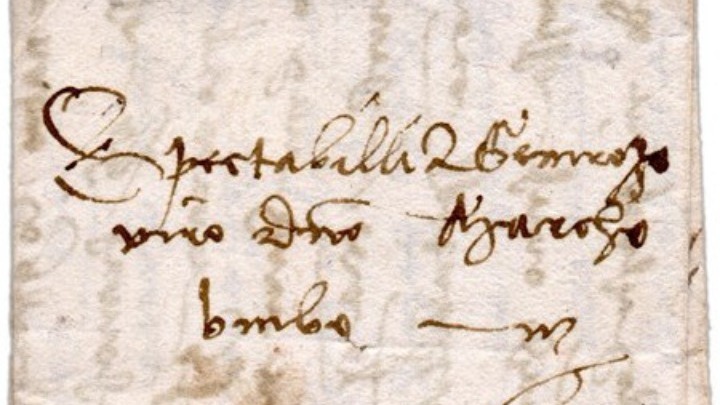 Spectabilli & Generoxo
viro dno Marcho
bembo